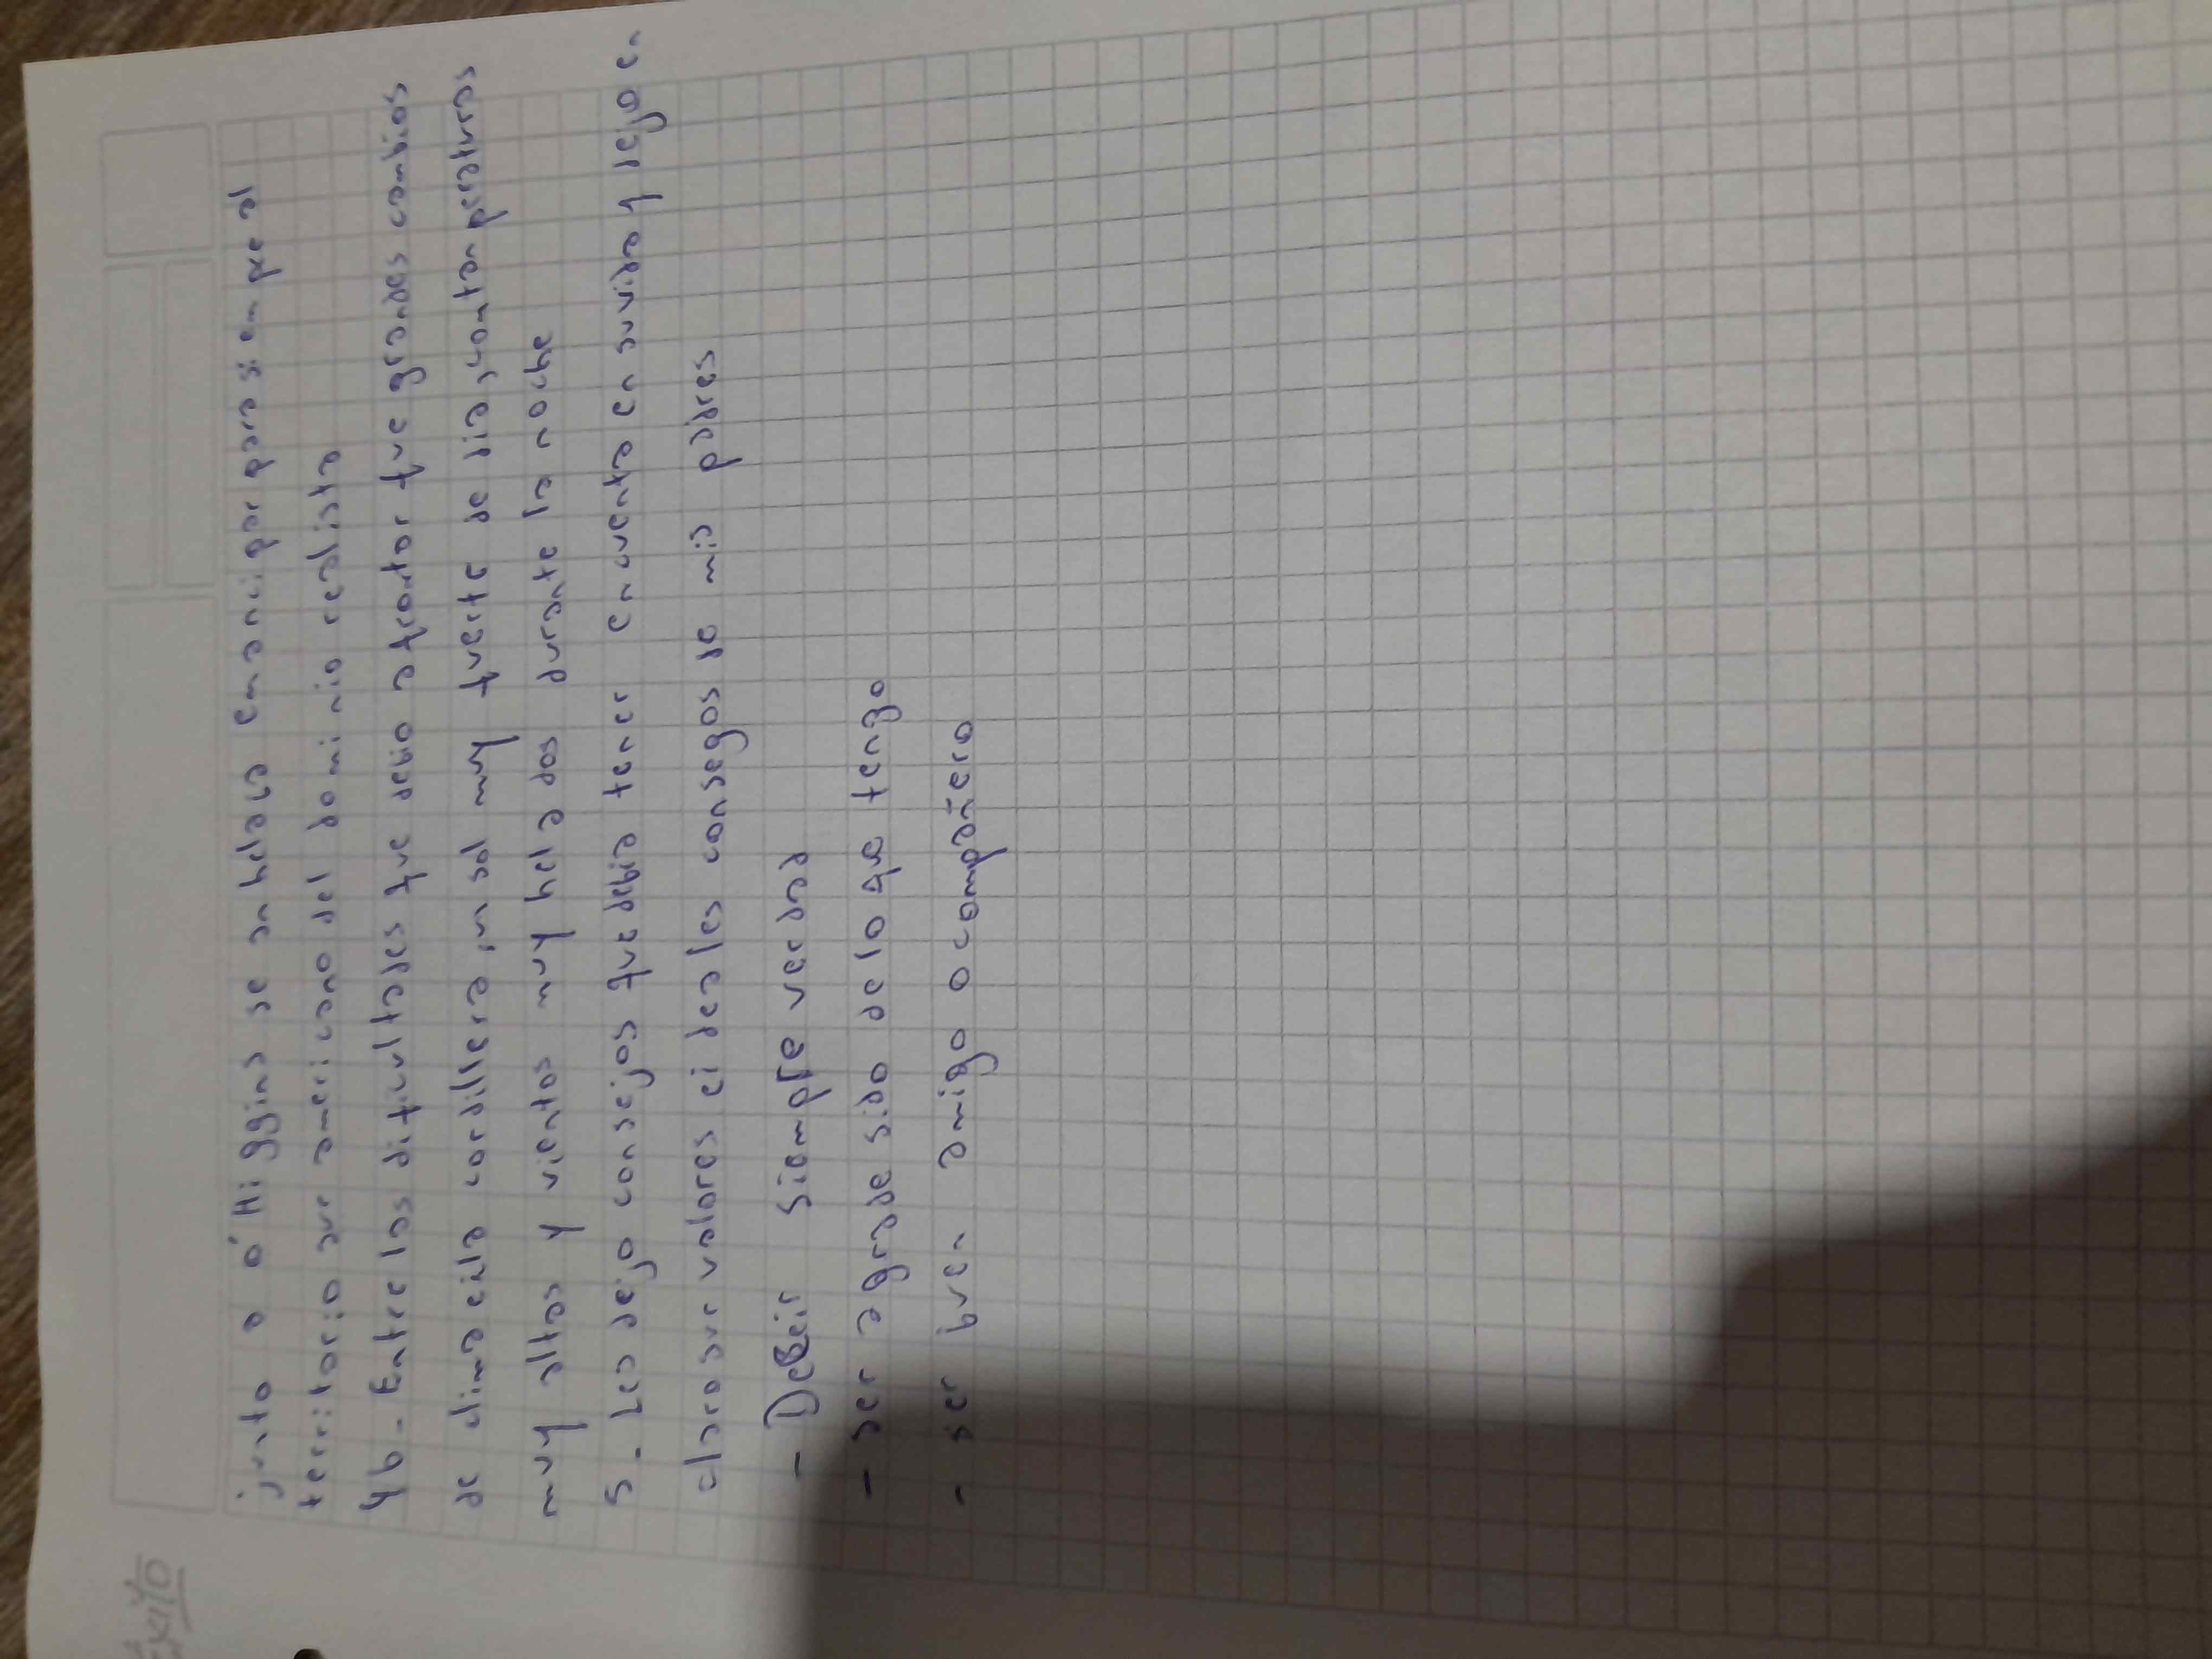 Éxito
junto a o'Higgins se anhelaba emancipar para siempre al
territorio sur americano del dominio realista
4b - Entre las dificultades que debio afrontar fue grandes cambios
de clima en la cordillera, un sol muy fuerte de dia, con tan peraturas
muy altas y vientos muy helados durante la noche
5 - Les dejo consejos que debia tener en cuenta en su vida y dejo en
claro sur valores e ideales consegos de mis padres
- Decir siempre verdad
- ser agrade sido de lo qe tengo
- ser buen amigo o compañero